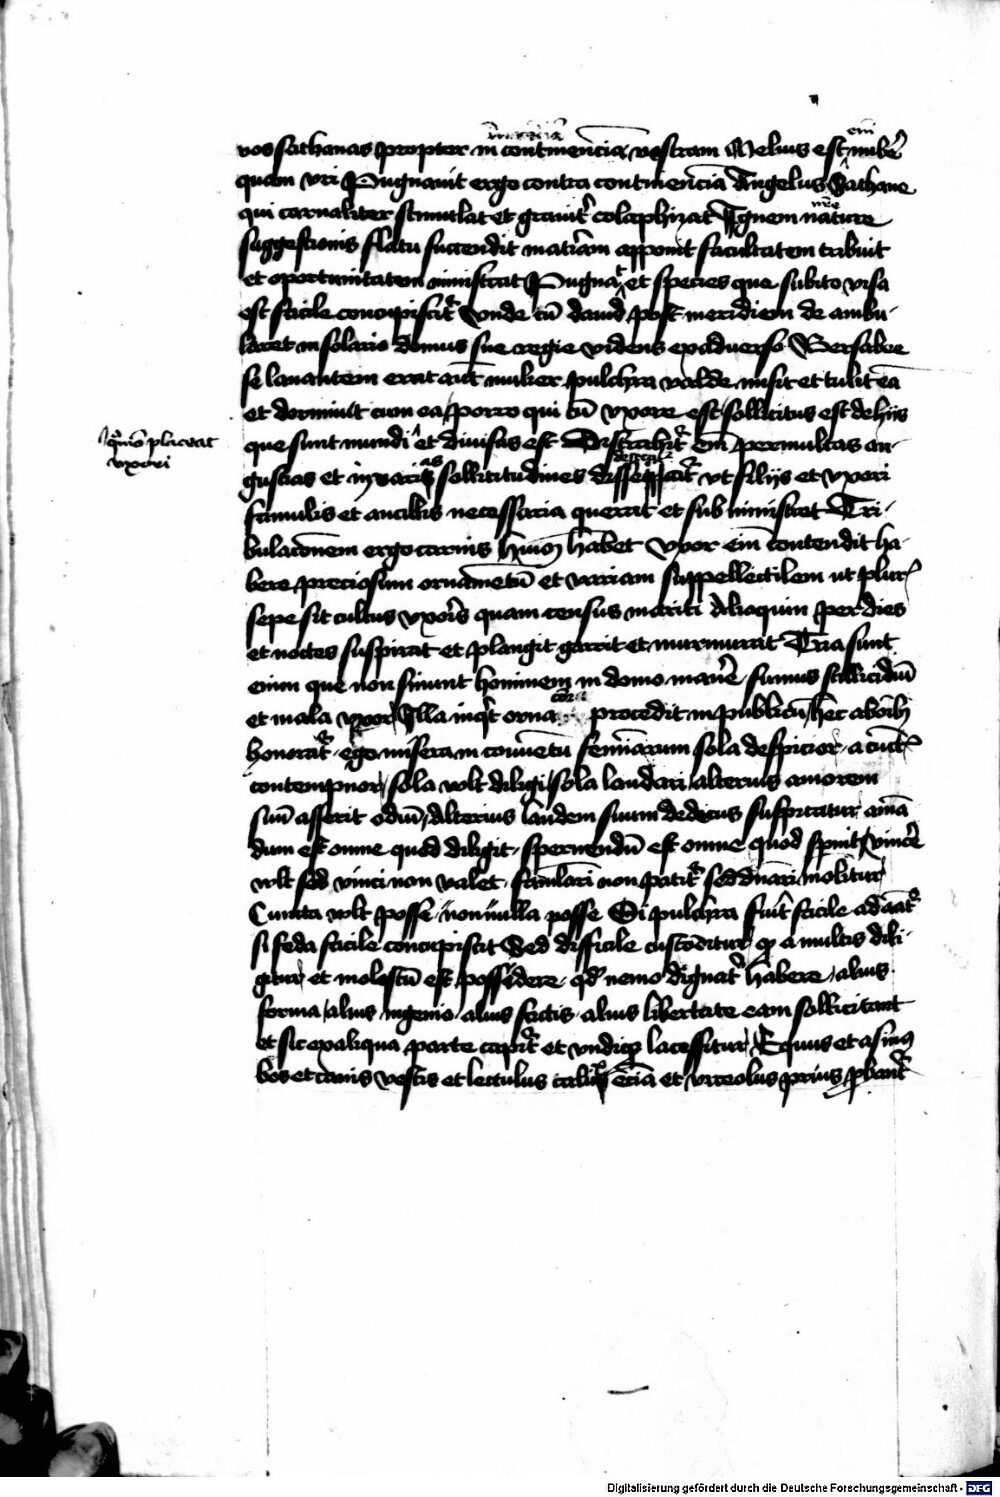 vos sathanas propter incontinenciā vestram Melius est eni nubē
quam vri Pugnauit ergo contra continenciā Angelus Sathane
qui carnaliter stimulat et grauitˀ colaphizat Ignem nature mee
suggestionis flatu succendit matˀiam apponit facultatem tribuit
et oportunitatem ministrat Pugnat et species que subito visa
est facile concupiscitˀ Vnde cū dauid post meridiem de ambu-
laret in solario domus sue regie videns exaduerso Bersabee
se lauantem erat aūt mulier pulchra valde misit et tulit eā
et dormiuit cum ea Porro qui cū vxore est sollicitus est de hijs
que sunt mundi et diuisus est Distrahitˀ em̄ per multas an-
gustias et in varias sollicitudines ut filijs et vxori
famulis et ancillis necessaria querat et subministret Tri-
bulacōnem ergo carnis hmōi habet Vxor em̄ contendit ha-
bere preciosum ornamētū et variam suppellectilem ut plurˀ
sepe sit cultus vxoris quam census mariti Alioquin per dies
et noctes suspirat et plangit garrit et murmurat Tria sunt
enim que non sinunt hominem in domo manēˀ fumus stillicidiū
et mala vxor Illa inqˀt ornacior procedit in publicū hec ab oībꝫ
honoratˀ ego misera in conuētu feminarum sola despicior a cūctˀ
contempnor sola volt diligi sola laudari alterius amorem
suū asserit odiū Alterius laudem suum dedecus suspicatur amā
dum est omne quod diligit spernendū est omne quod spnit vincēˀ
volt sed vinci non valet famulari non patitˀ sed dnāri molitur
Cuncta volt posse non nulla posse Si pulchra fuitˀ facile adāatˀ
si feda facile concupiscit Sed difficile custoditur qꝫ a multis dili-
gitur et molestū est possidere qd̄ nemo dignatˀ habere alius
forma alius ingenio alius factis alius libertate eam sollicitant
et sic ex aliqua parte capitˀ et vndiqꝫ lacessitur Equus et asinꝰ
bos et canis vestis et lectulus calix eciā et vrceolus prius ꝓbantˀ
quō placeat
vxori
Digitalisierung gefördert durch die Deutsche Forschungsgemeinschaft - DFG